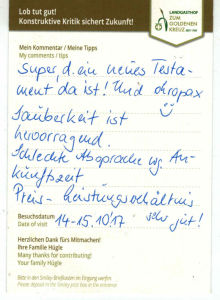 Lob tut gut!
Konstruktive Kritik sichert Zukunft!
LANDGASTHOF
ZUM
GOLDENEN
KREUZ
Mein Kommentar / Meine Tipps
My comments / tips
Super d. ein neues Testa-
ment da ist! Und ohropax
Sauberkeit ist
hervorragend.
Schlechte Absprache wg. An-
kunftszeit
Preis- Leistungsverhältnis
sehr gut!
Besuchsdatum
Date of visit
14-15.10.17
Herzlichen Dank fürs Mitmachen!
Ihre Familie Hügle
Many thanks for contributing!
Your family Hügle
Bitte in den Smiley-Briefkasten im Eingang werfen.
Please deposit in the Smiley post box at the entrance.